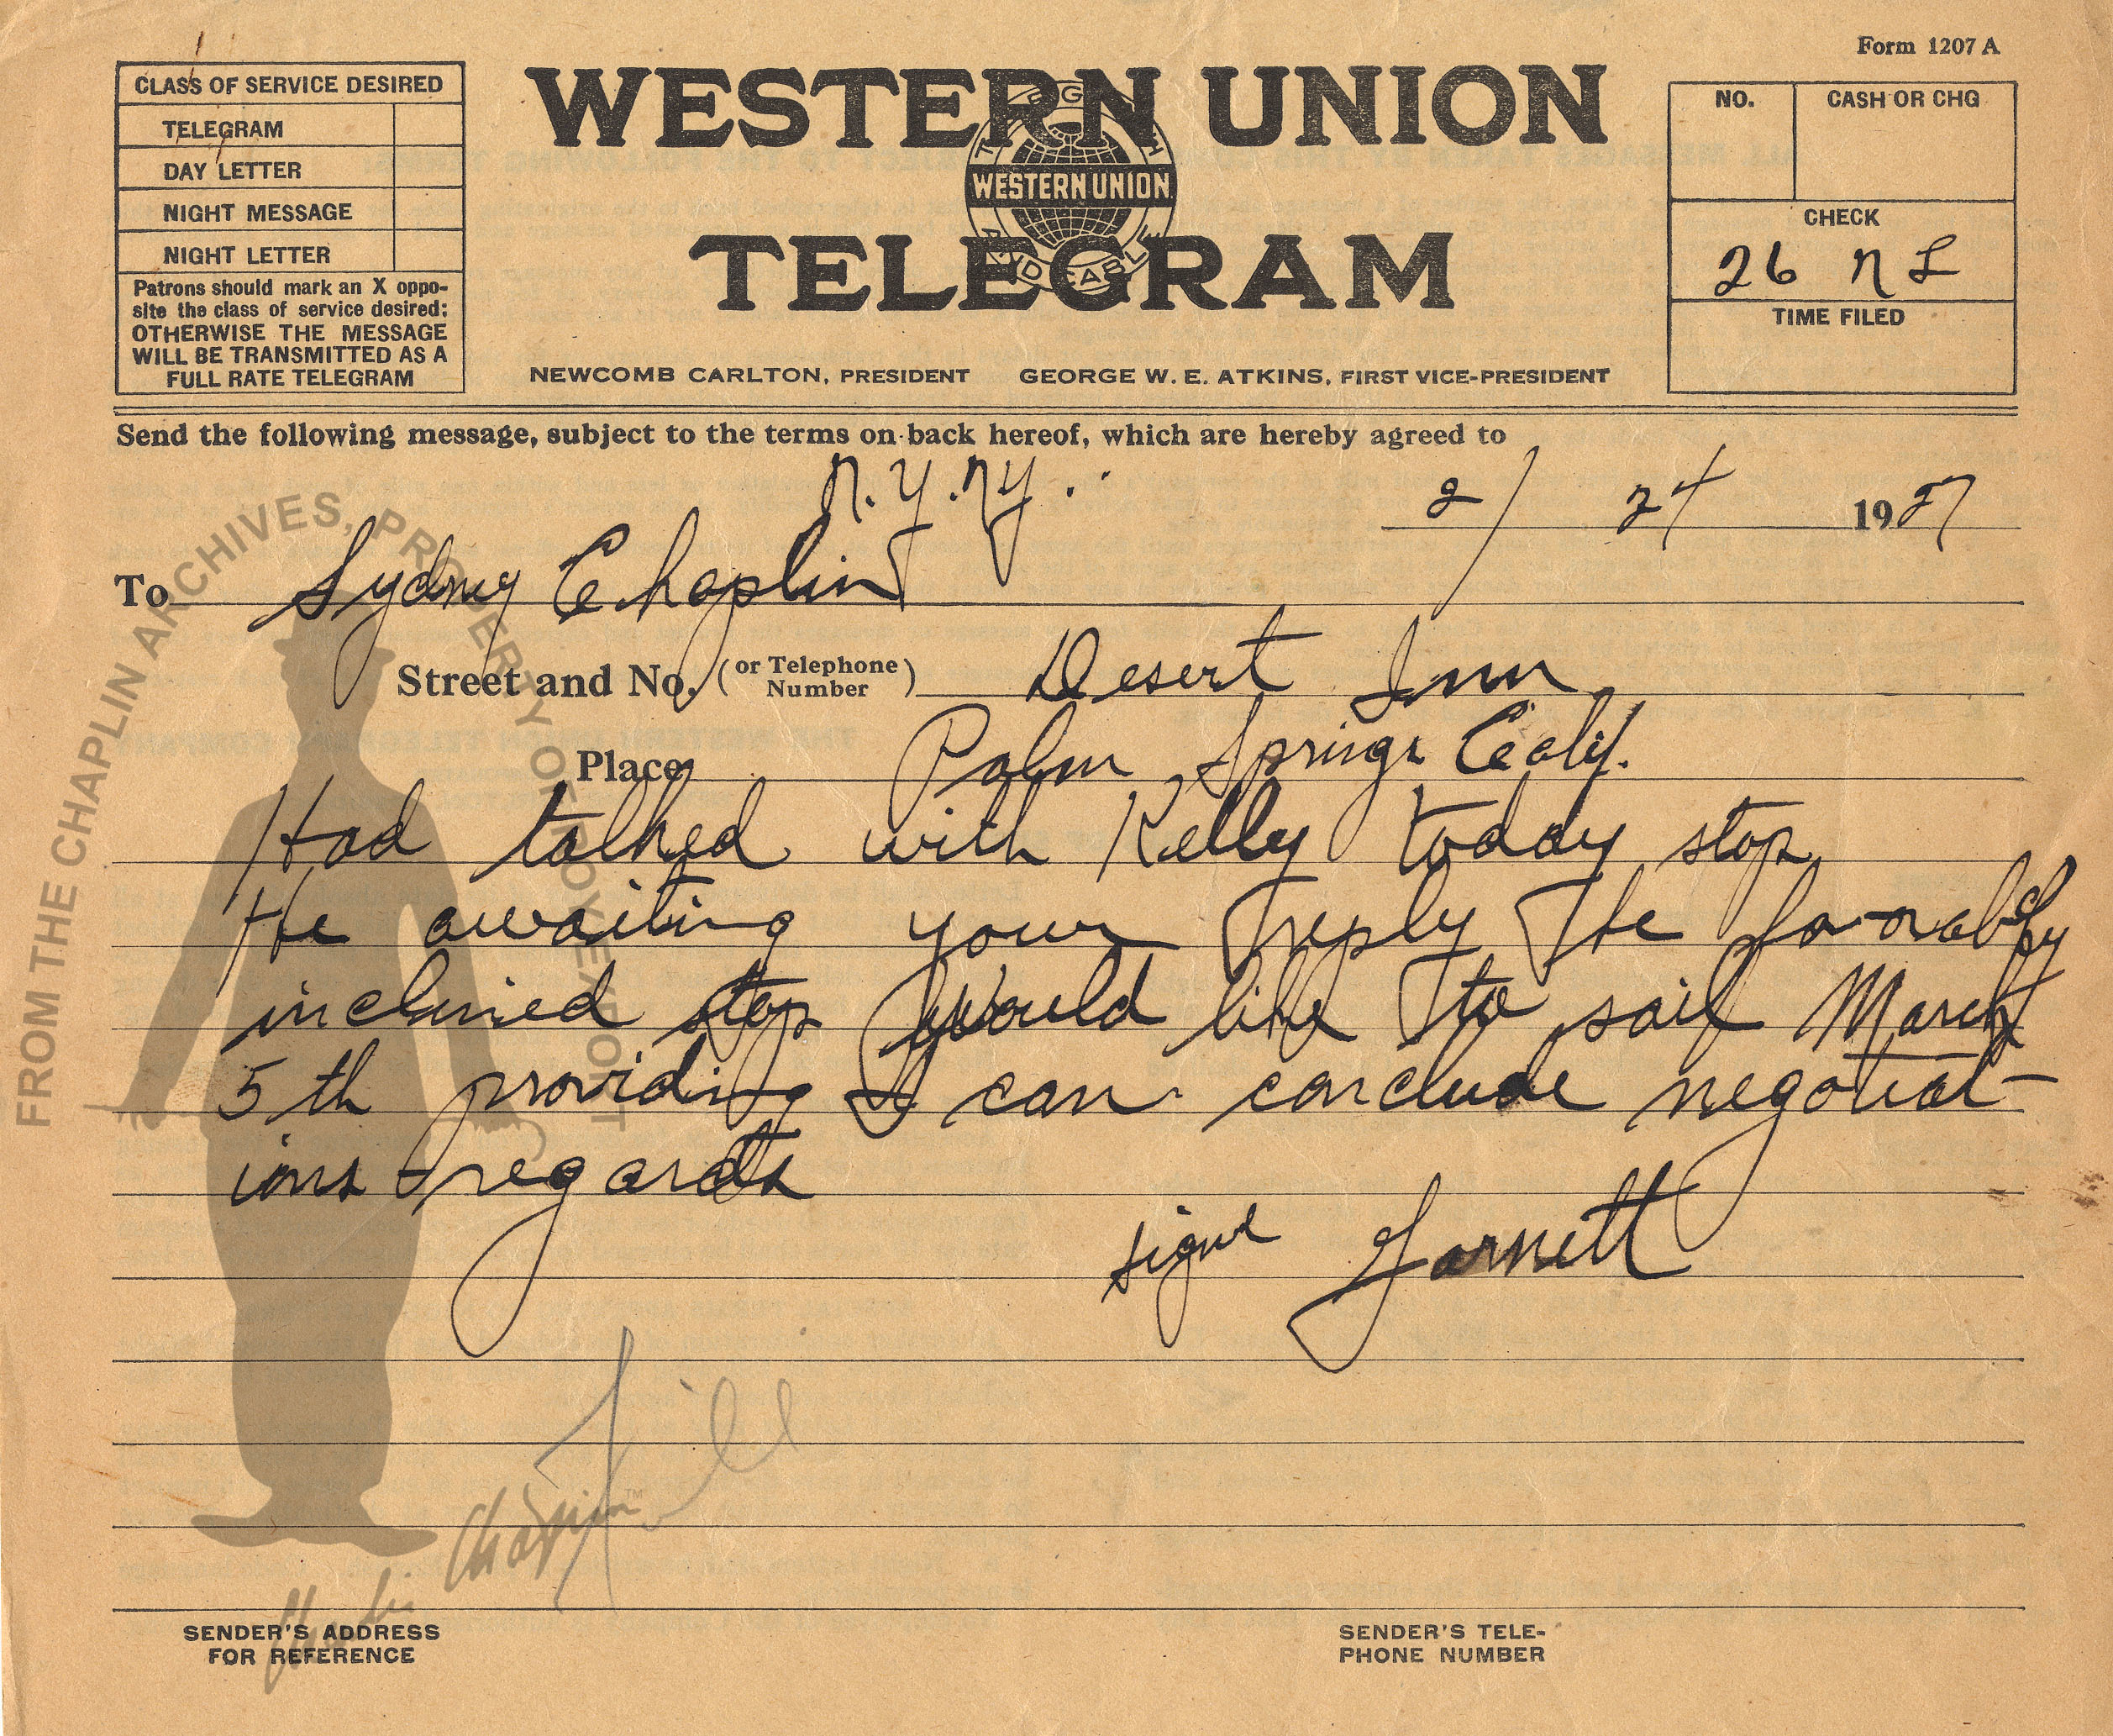 Form 1207 A
CLASS OF SERVICE DESIRED
TELEGRAM
DAY LETTER
NIGHT MESSAGE
NIGHT LETTER
Patrons should mark an X oppo-
site the class of service desired:
OTHERWISE THE MESSAGE
WILL BE TRANSMITTED AS A
FULL RATE TELEGRAM
WESTERN UNION
WESTERN UNION
TELEGRAM
NEWCOMB CARLTON, PRESIDENT GEORGE W. E. ATKINS, FIRST VICE-PRESIDENT
NO. CASH OR CHG
CHECK
26 NL
TIME FILED
Send the following message, subject to the terms on back hereof, which are hereby agreed to
N.Y. NY. 2/ 24 1927
To Sydney Chaplin
Street and No. (or Telephone Number) Desert Inn
Place Palm Springs Calif.
Had talked with Kelly today stop
He awaiting your reply He favorably
inclined stop Would like to sail March
5th providing I can conclude negotiat-
ions - regards
Garnett
SENDER'S ADDRESS
FOR REFERENCE
SENDER'S TELE-
PHONE NUMBER
FROM THE CHAPLIN ARCHIVES, PROPERTY OF ROY EXPORT
Charlie Chaplin